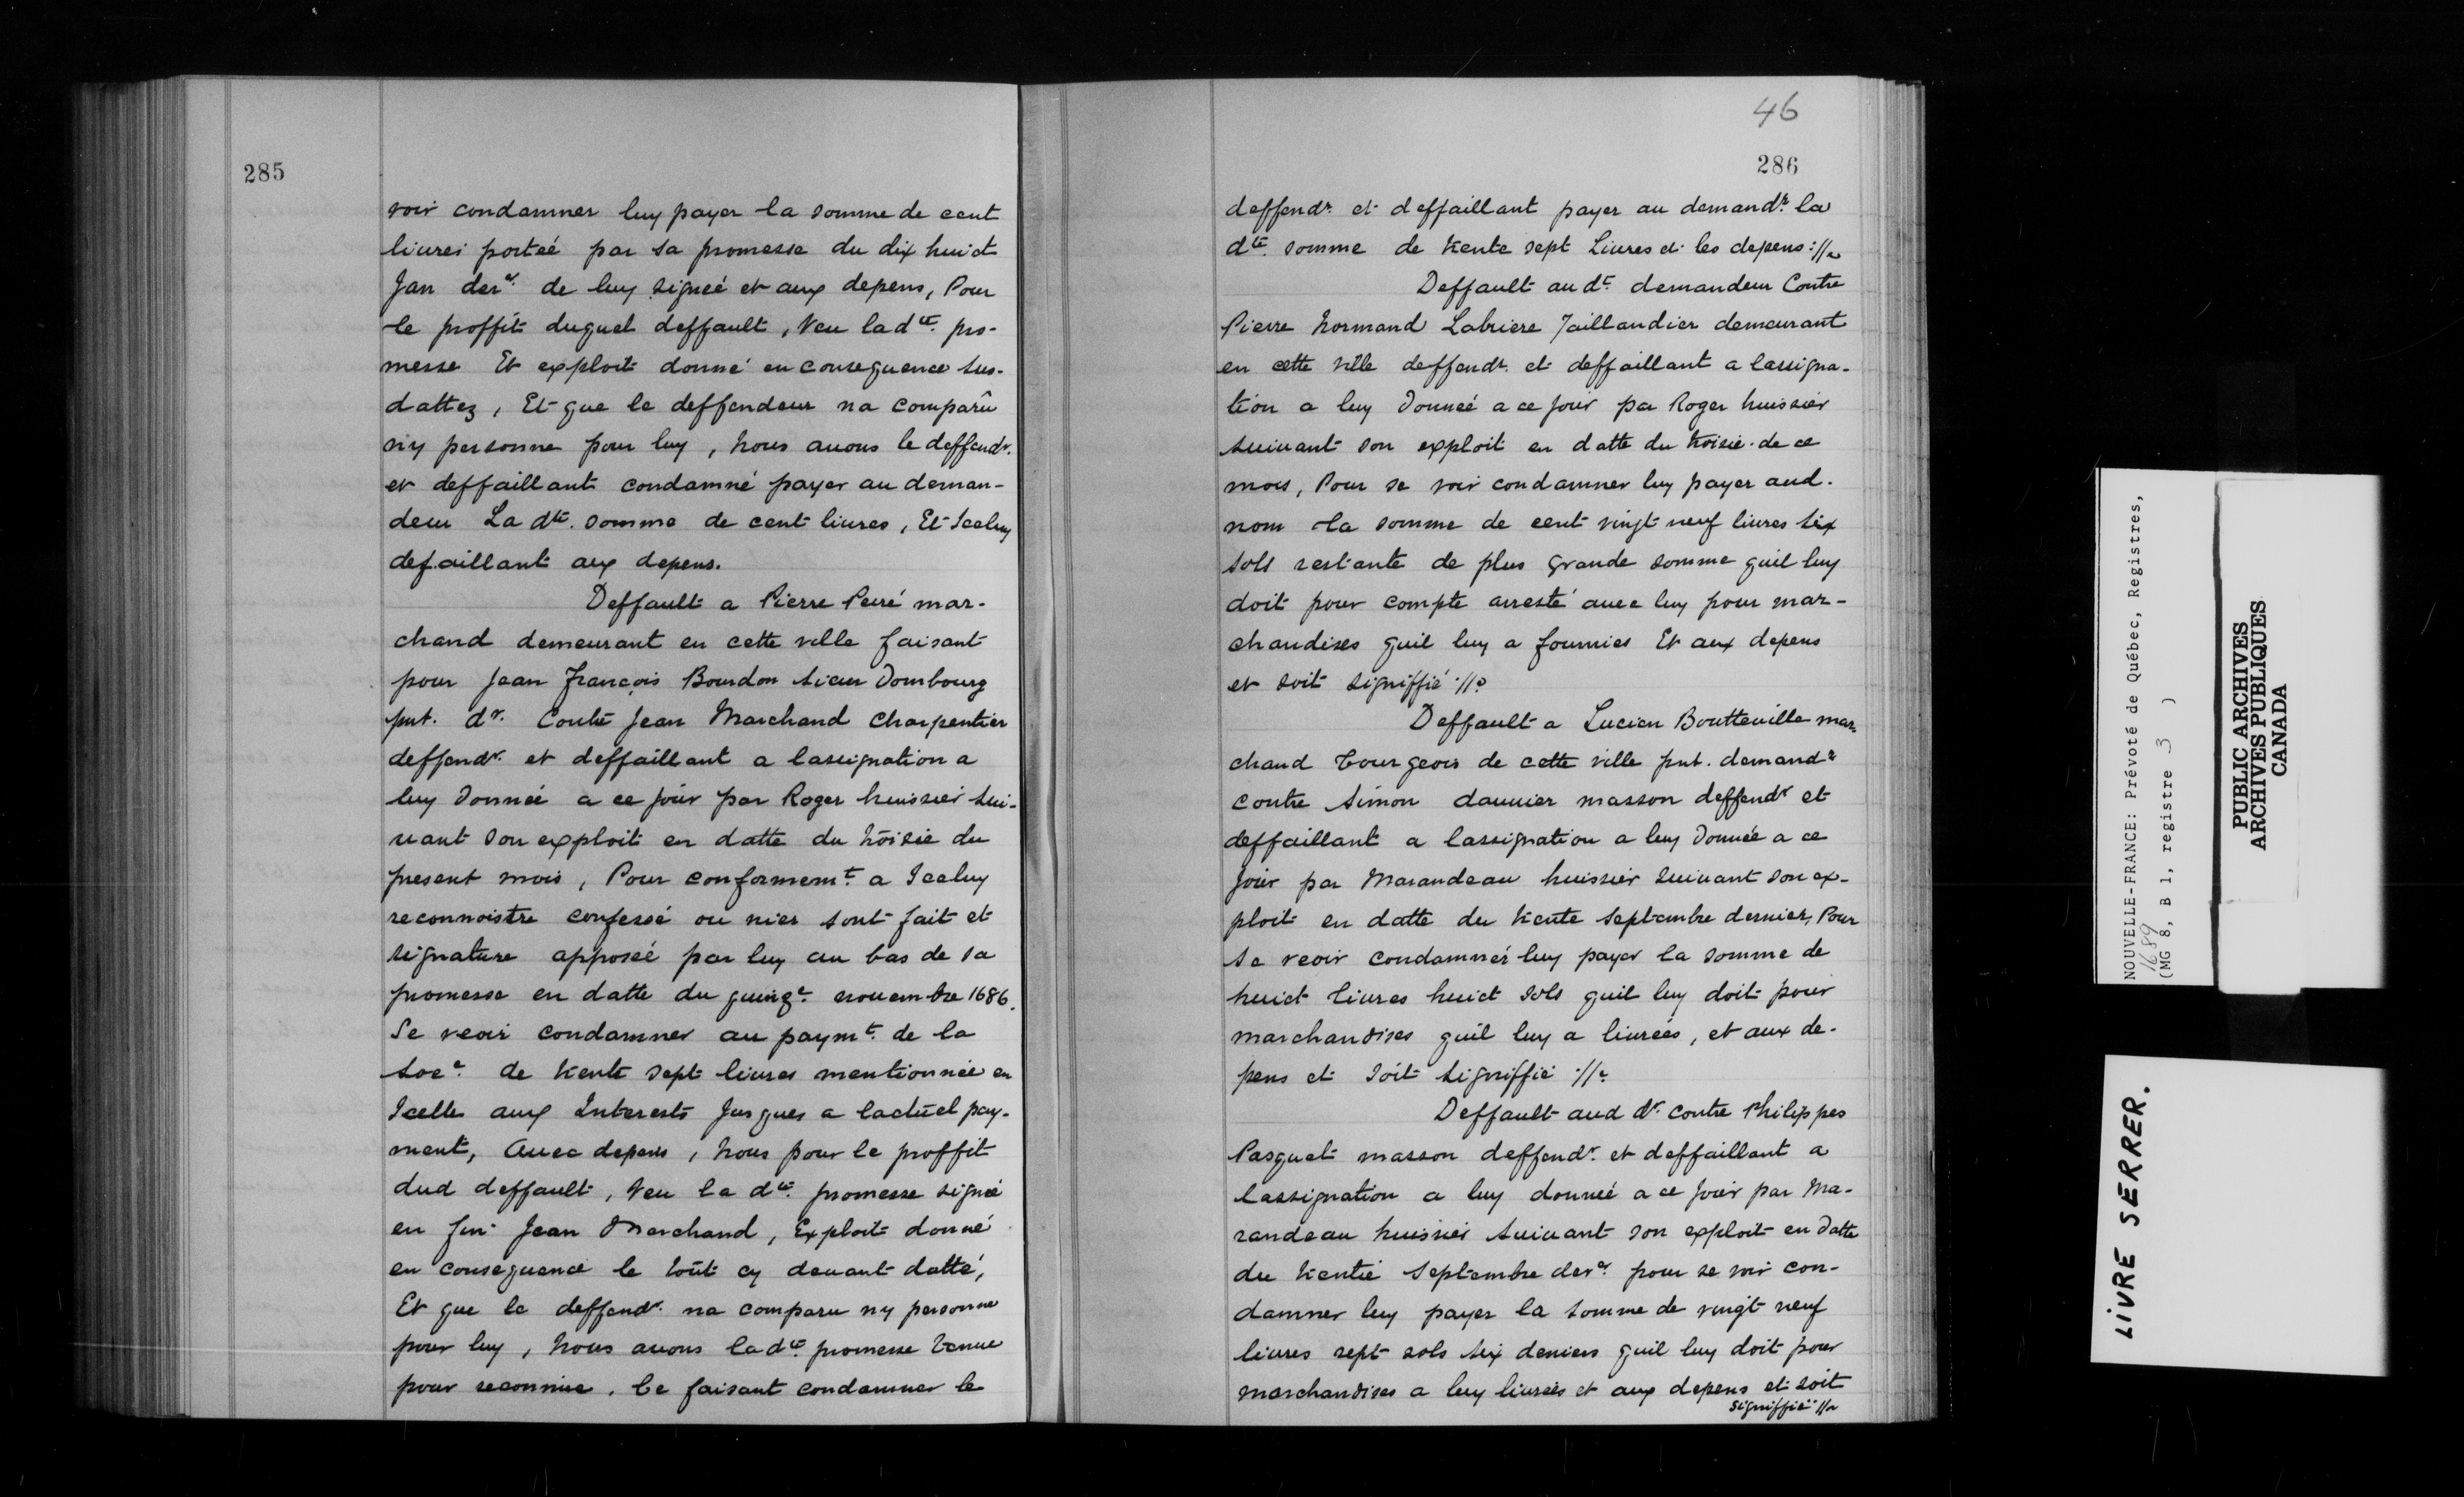 285
voir condamner luy payer la somme de cent
liures porteé par sa promesse du dix huict
Jan der.r de luy signeé et aux depens, Pour
le proffit duquel deffault, Veu lad.te pro-
messe Et exploit donné en consequence sus-
dattez, Et que le deffendeur na comparû
ny personne pour luy, nous auons le deffendr.
et deffaillant condamné payer au deman-
deur La dte. somme de cent liures, Et Iceluy
defaillant aux depens.
Deffault a Pierre Peiré mar-
chand demeurant en cette ville faisant
pour Jean François Bourdon sieur Dombourg
pnt. dr. Contre Jean Marchand charpentier
deffendr. et deffaillant a lassignation a
luy donneé a ce jour par Roger huissier sui-
uant son exploit en datte du troisie du
present mois, Pour conformemt. a Iceluy
reconnoistre confessé ou nier sont fait et
signature apposeé par luy au bas de sa
promesse en datte du quinze. nouembre 1686.
Se veoir condamner au paymt. de la
soe. de trente sept liures mentionneé en
Icelle aux Interests Jusques a lactuel pay-
ment, Auec depens, nous pour le proffit
dud deffault, Veu la dte. promesse signeé
en fin Jean Marchand, Exploit donné
en consequence le tout cy deuant datté,
Et que le deffendr. na comparu ny personne
pour luy, nous auons lad.te promesse tenue
pour reconnue. ce faisant condamner le
46
286
deffendr. et deffaillant payer au demandr. la
dte. somme de trente sept Liures et les depens ://.
Deffault au dt. demandeur Contre
Pierre Normand Labriere Taillandier demeurant
en cette ville deffendr. et deffaillant a lassigna-
tion a luy donneé a ce jour par Roger huissier
suiuant son exploit en datte du troisie. de ce
mois, Pour se voir condamner luy payer aud.
nom la somme de cent vingt neuf liures six
sols restante de plus grande somme quil luy
doit pour compte arresté auec luy pour mar-
chandises quil luy a fournies Et aux depens
et soit signiffié ://.
Deffault a Lucien Boutteuille mar-
chand bourgeois de cette ville pnt. demandr
contre Simon dauuier masson deffendr et
deffaillant a lassignation a luy donneé a ce
jour par Marandeau huissier suiuant son ex-
ploit en datte du trente septembre dernier, Pour
se veoir condamner luy payer la somme de
huict liures huict sols quil luy doit pour
marchandises quil luy a liurées, et aux de-
pens et soit signiffié ://.
Deffault aud dr. contre Philippes
Pasquet masson deffendr. et deffaillant a
lassignation a luy donneé a ce jour par Ma-
randeau huissier suiuant son exploit en datte
du trentie septembre derr. pour se voir con-
damner luy payer la somme de vingt neuf
liures sept sols six deniers quil luy doit pour
marchandises a luy liurées et aux depens et soit
signiffié ://.
NOUVELLE-FRANCE: Prévoté de Québec, Registres,
1689
(MG 8, B 1, registre 3 )
PUBLIC ARCHIVES
ARCHIVES PUBLIQUES
CANADA
LIVRE SERRER.